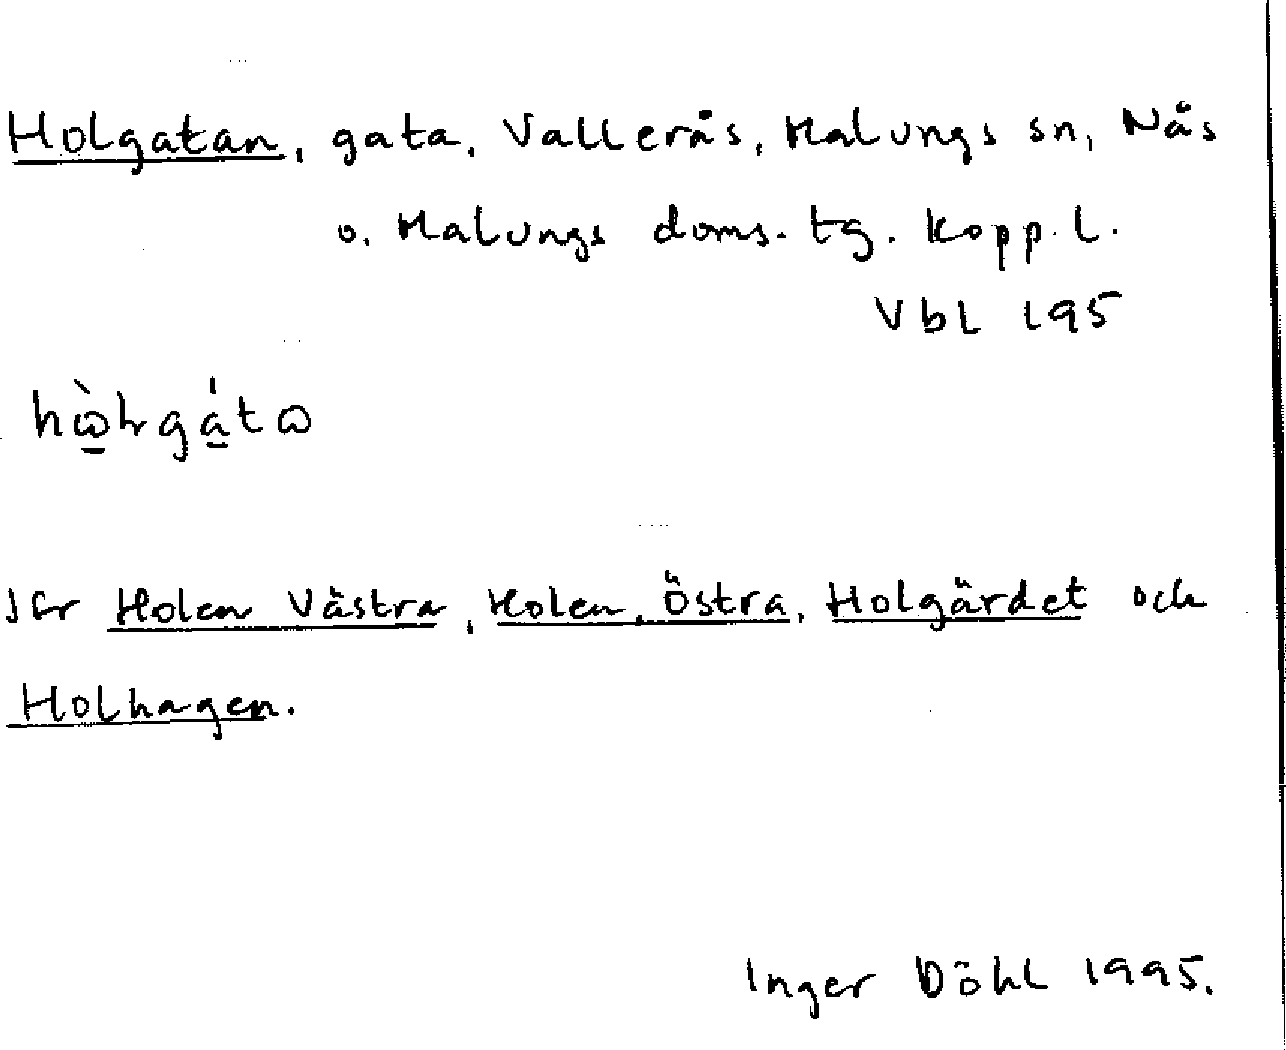 Holgatan, gata, Vallerås, Malungs sn, Nås
o. Malungs doms. tg. Kopp. l.
Vbl 195
Jfr Holen Västra, Holen, Östra, Holgärdet och
Holhagen.
Inger Döhl 1995.